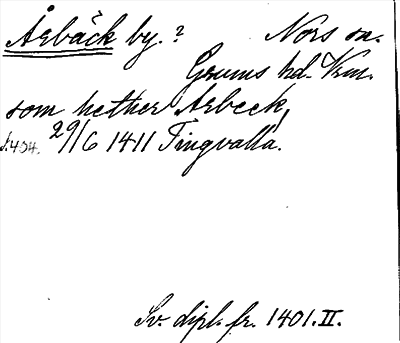 Årbäck by. ? Nors sn.
Grums hd. Vrm.
som hether Arbeck,
s.404. 29/6 1411 Tingvalla.
Sv. dipl. fr. 1401. II.